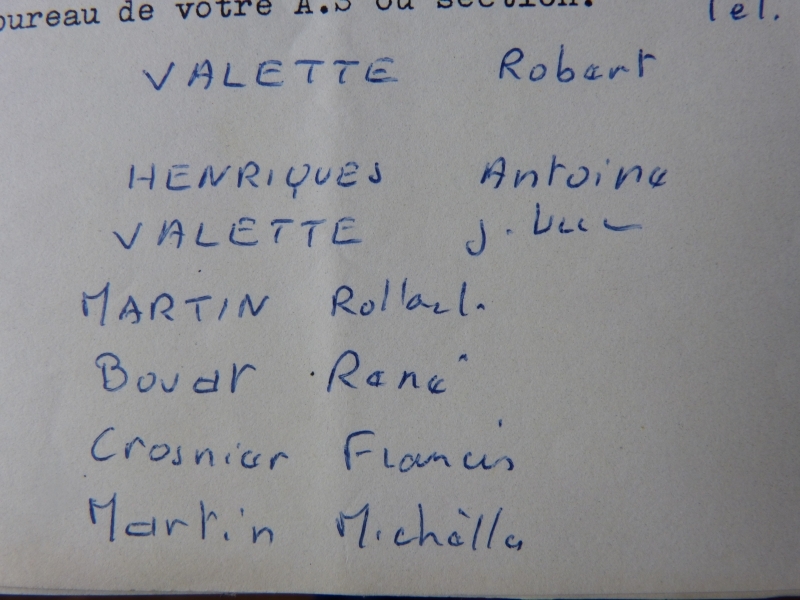 bureau de votre A.S ou section. Tel.
VALETTE Robert
HENRIQUES Antoine
VALETTE J. Luc
MARTIN
Bovar René
Crosnier Francis
Martin Michèlle